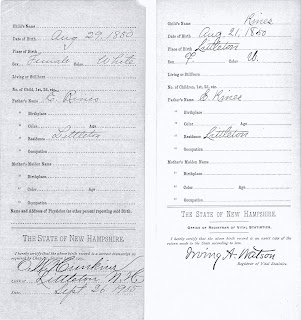 Child's Name
Date of Birth Aug 29, 1850
Place of Birth
Sex Female Color White
Living or Stillborn
No. of Child, 1st, 2d, etc.
Father's Name E. Rines
" Birthplace
" Color Age
" Residence Littleton
" Occupation
Mother's Maiden Name
" Birthplace
" Color Age
" Residence
" Occupation
Name and Address of Physician (or other person) reporting said Birth
THE STATE OF NEW HAMPSHIRE.
Littleton N.H.
Date Sept. 26, 1905
Child's Name Rines
Date of Birth Aug 21, 1850
Place of Birth Littleton
Sex F. Color W.
Living or Stillborn
No. of Children, 1st, 2d, etc.
Father's Name E. Rines
" Birthplace
" Color Age
" Residence Littleton
" Occupation
Mother's Maiden Name
" Birthplace
" Color Age
" Residence
" Occupation
THE STATE OF NEW HAMPSHIRE.
OFFICE OF REGISTRAR OF VITAL STATISTICS.
I hereby certify that the above birth record is an exact copy of the
return made to the State according to law.
Irving A. Watson
Registrar of Vital Statistics.